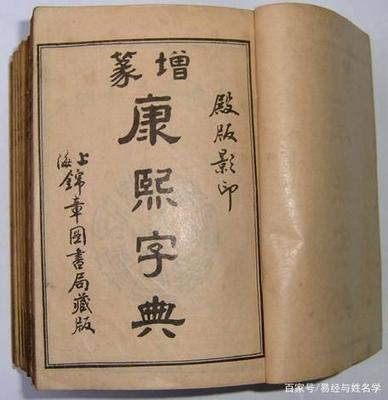 增篆
殿版影印
康熙字典
上海錦章圖書局藏版
百家号/易经与姓名学